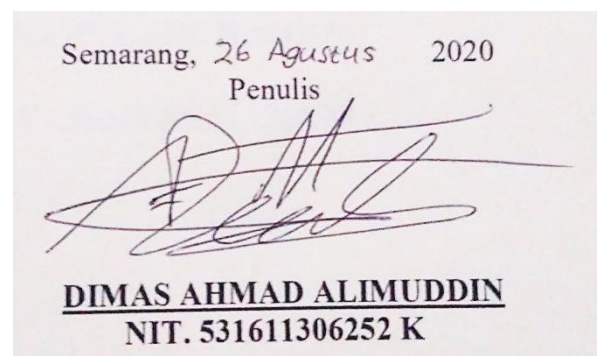 Semarang, 26 Agustus 2020
Penulis
DIMAS AHMAD ALIMUDDIN
NIT. 531611306252 K